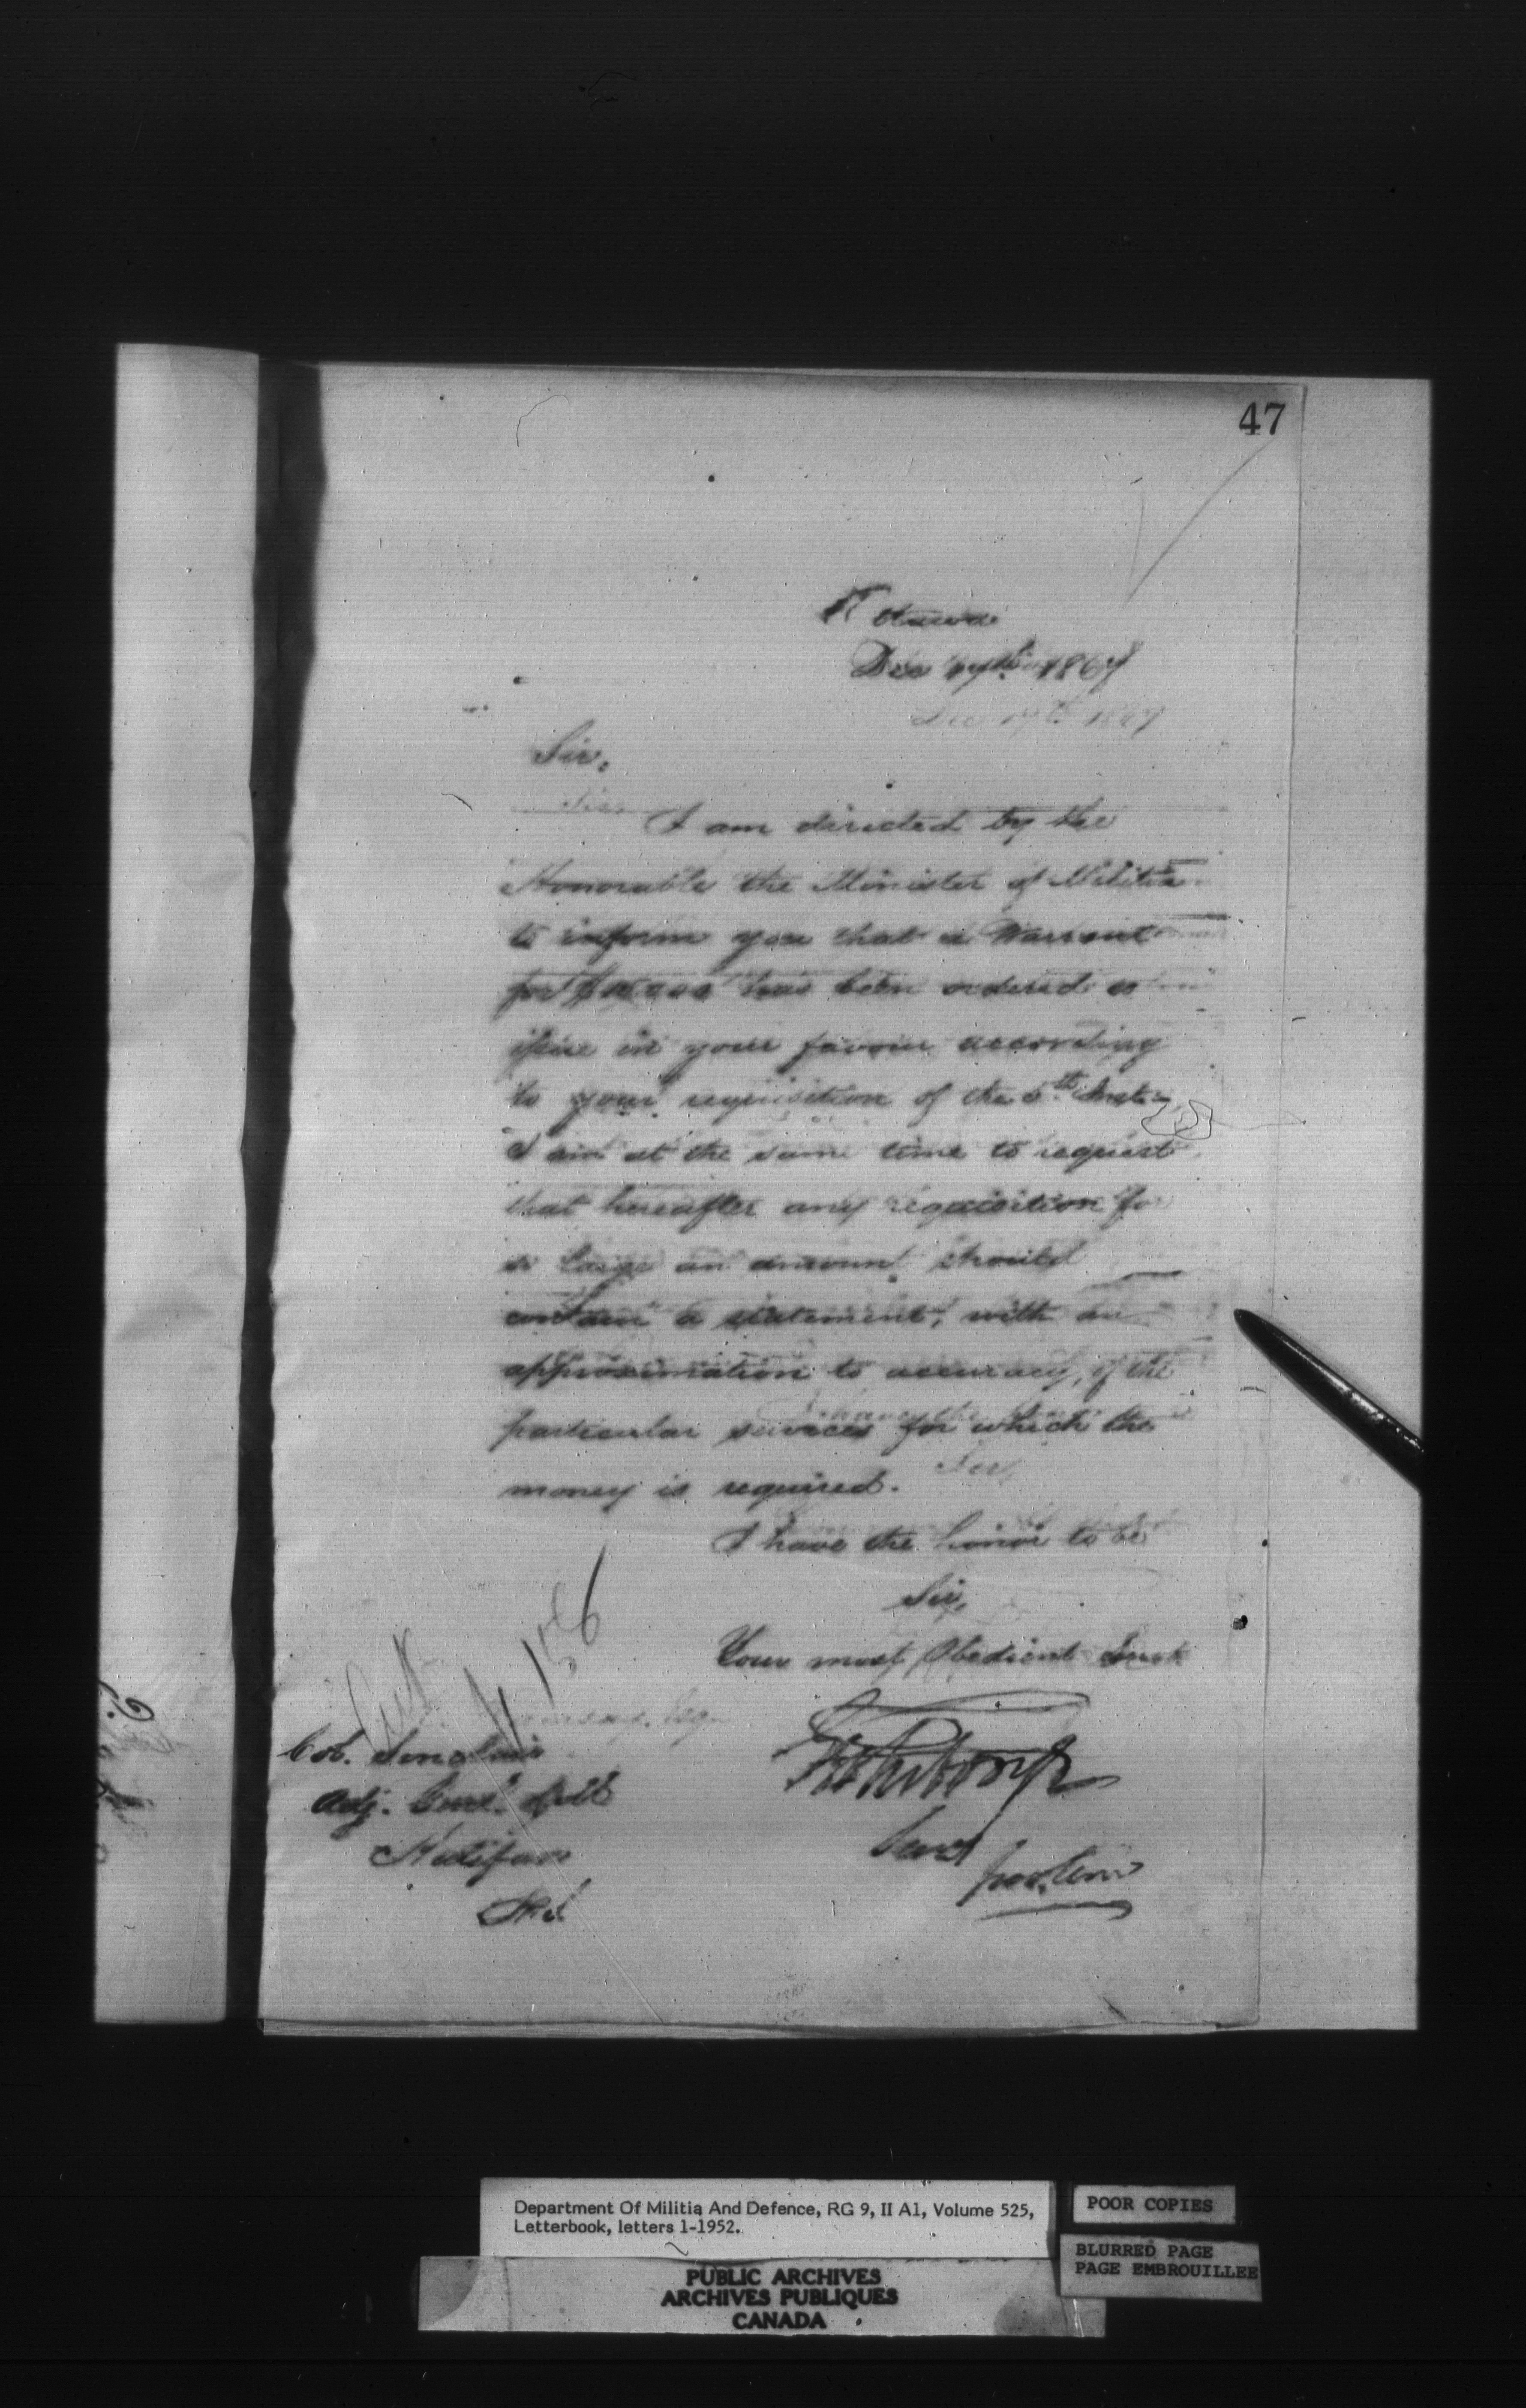 47
Ottawa
Dec 17th 1867
Dec 17th 1867
Sir,
Sir,
I am directed by the
Honorable the Minister of Militia
to inform you that a Warrant
for has been ordered to
issue in your favour according
to your requisition of the 5th Inst.
I am at the same time to request
that hereafter any requisition for
so large an amount should
contain a statement, with an
approximation to accuracy, of the
particular services for which the
money is required.
Sir,
I have the honor to be
Sir,
Your most Obedient Servt.
Col. Sinclair
Adj. Genl. Mil
Halifax
N.S.
pro. tem
Department Of Militia And Defence, RG 9, II A1, Volume 525,
Letterbook, letters 1-1952.
POOR COPIES
BLURRED PAGE
PAGE EMBROUILLEE
PUBLIC ARCHIVES
ARCHIVES PUBLIQUES
CANADA